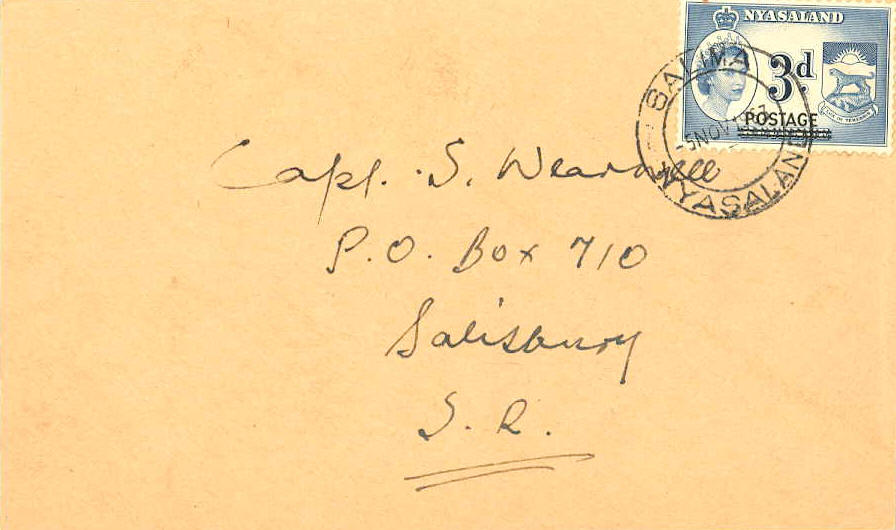 NYASALAND
3d
POSTAGE
SALIMA
NYASALAND
Capt. S.
P.O. Box 710
Salisbury
S. R.